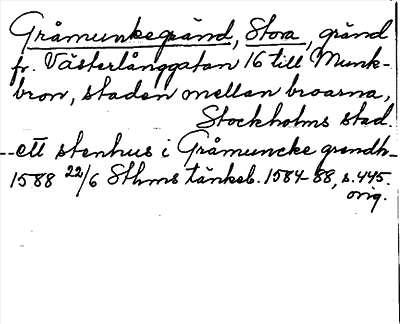 Gråmunkegränd, Stora, gränd
fr. Västerlånggatan 16 till Munk-
bron, staden mellan broarna,
Stockholms stad.
--ett stenhus i Gråmuncke grendh-
1588 22/6 Sthms tänkeb. 1584-88, s. 445.
orig.